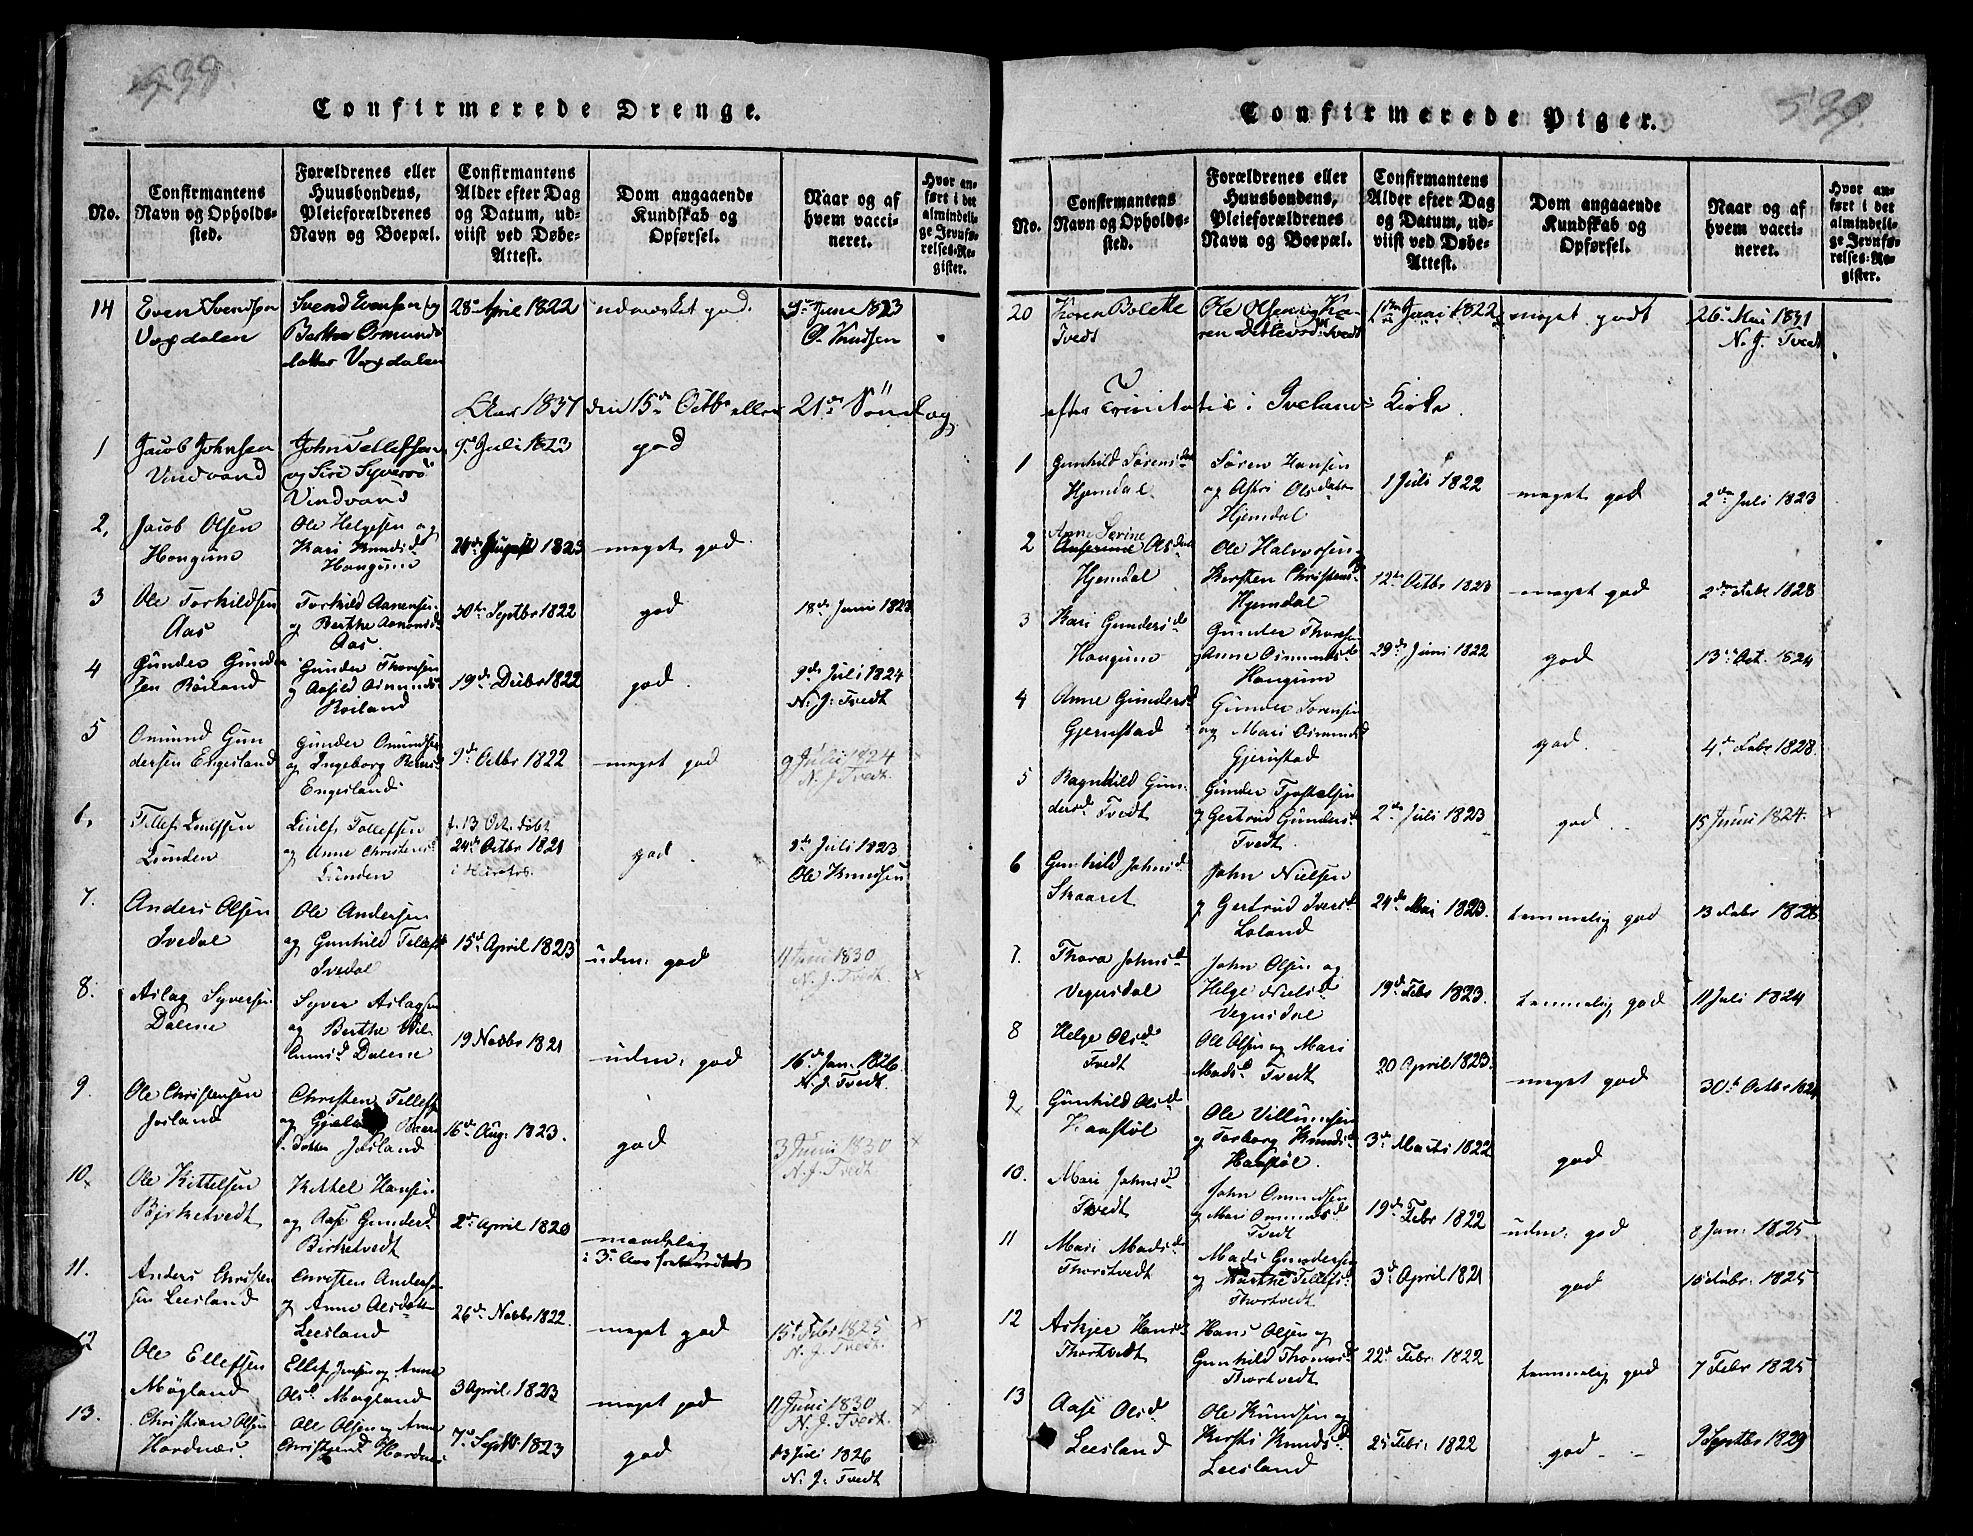 539.
Confirmerede Drenge.
No.
Confirmantens
Navn og Opholds-
sted.
Forældrenes eller
Huusbondens,
Pleieforældrenes
Navn og Boepæl.
Confirmantens
Alder efter Dag
og Datum, ud-
viist ved Døbe-
Attest.
Dom angaaende
Kundskab og
Opførsel.
Naar og af
hvem vacci-
neret.
Hvor an-
ført i det
almindeli-
ge Jevnfø-
relses-Re-
gister.
14 Even Svendsen Svend Evensen og 28de April 1822 udmærket god. 9de Juni 1823
Vogsdalen Berthe Osmunds O. Knudsen
datter Vogsdalen
Aar 1837 den 15de Octbr eller 21de Søndag
1 Jacob Johnsen John Tellefsen 9de Juli 1823 god
Vindvand og Siri Syversd
Vindvand
2. Jacob Olsen Ole Helgesen og
Hongum Kari Knudsd 1823 meget god.
Hongum
3 Ole Torkildsen Torkild Aanensen 30te Septbr 1822 god 18de Juni 1823
Aas og Berthe Aanonsd
Aas
4 Gunder Gunder Gunder Thoresen
sen Røiland og Aasild Osmunds 19de Decbr 1822 god. 9de Juli 1824
Røiland N. J. Tvedt
5 Omund Gun Gunder Omundsen
dersen Engesland og Ingeborg 9de Octbr 1822 meget god 9 Juli 1824
Engesland N. J. Tvedt.
6. Tellef Leulfsen Leulf Tellefsen f. 13 Oct. døbt
Lunden og Anne Christensd 24de Octbr 1821 god. 3de Juli 1823
Lunden Ole Knudsen
7. Anders Olsen Ole Andersen
Ivedal og Gunhild Tellefsd 15de April 1823 udm: god 11 Juni 1830
Ivedal N. J. Tvedt.
8. Aslag Syversen Syver Aslagsen
Dalene og Berthe Wil 19 Novbr 1821 udm: god 16de Jan. 1826
Dalene N. J. Tvedt.
9. Ole Christensen Christen Tellefs
Josland og 16de Aug. 1823. god 3 Juni 1830
datter Josland N. J. Tvedt
10. Ole Kittelsen Kittel Hansen
Birketvedt og Aase Gundersd 2de April 1820 maadelig
Birketvedt
11. Anders Christen Christen Andersen
sen Leesland og Anne Olsdatter 26de Novbr 1822. meget god 15de Febr 1825
Leesland N. J. Tvedt.
12 Ole Ellefsen Ellef Jensen og Anne
Møgland Olsd Møgland 3 April 1823 meget god 11 Juni 1830
N. J. Tvedt.
13. Christian Olsen Ole Olsen og Anne
Hordnæs Christensd Hordnes 7de Septbr 1823 god 13 Juli 1826
N. J. Tvedt
539.
Confirmerede Piger.
No.
Confirmantens
Navn og Opholds-
sted.
Forældrenes eller
Huusbondens,
Pleieforældrenes
Navn og Boepæl.
Confirmantens
Alder efter Dag
og Datum, ud-
viist ved Døbe-
Attest.
Dom angaaende
Kundskab og
Opførsel.
Naar og af
hvem vacci-
neret.
Hvor an-
ført i det
almindeli-
ge Jevnfø-
relses-Re-
gister.
20 Karen Bolette Ole Olsen og Ka- 1ste Juni 1822 meget godt 26de Mai 1831
Tvedt ren Ditlevsd. Tvedt N. J. Tvedt
efter Trinitatis i Ivelands Kirke.
1 Gunhild Sørensd Søren Hansen
Hjemdal og Astri Olsdatter 1 Juli 1822 meget god 2den Juli 1823
Hjemdal
2 Anne Serine Olsd Ole Halvorsen
Hjemdal Kersten Christensd 12te Octbr 1823 meget god 2den Febr 1828
Hjemdal
3 Kari Gundersd Gunder Thoresen
Hongum og Anne Osmundsd 29de Juni 1822 god 13de Oct. 1824
Hongum
4 Anne Gundersd Gunder Sørensen
Gjernstad og Mari Osmundsd god. 4de Febr 1828.
Gjernstad
5 Ragnhild Gun- Gunder
dersd Tvedt og Gertrud Gundersd 2de Juli 1823 god. 15 Juni 1824.
Tvedt.
6 Gunhild Johnsd John Nielsen
Skaaret og Gertrud Iversd 24de Mai 1823. temmelig god 13 Febr 1828
Loland
7. Thora Johnsd John Olsen og
Vegusdal Helge Nielsd 19de Febr 1823. temmelig god 11 Juli 1824
Vegusdal
8 Helge Olsd Ole Olsen og Mari
Tvedt Madsd Tvedt 20 April 1823. meget god 30te Octbr 1824
9 Gunhild Olsd Ole Villumsen
Haastøl og Torborg Knudsd 3de Marts 1822 god
Haastøl.
10. Mari Johnsd John Omundsen
Tvedt og Mari Omundsd 19de Febr 1822 udm: god 8 Jan. 1825.
Tvedt
11 Mari Madsd Mads Gundersen
Thortvedt og Marthe Tellefsd 3de April 1821 god 15 Febr. 1825
Thortvedt
12 Askjer Hansd Hans Olsen og
Thortvedt Gunhild Thomasd 22de Febr. 1822 temmelig god 7 Febr 1825
Thortvedt
13 Aase Olsd Ole Knudsen og
Leesland Kirsti Knudsd 25 Febr. 1822 god 9 Septbr 1829
Leesland